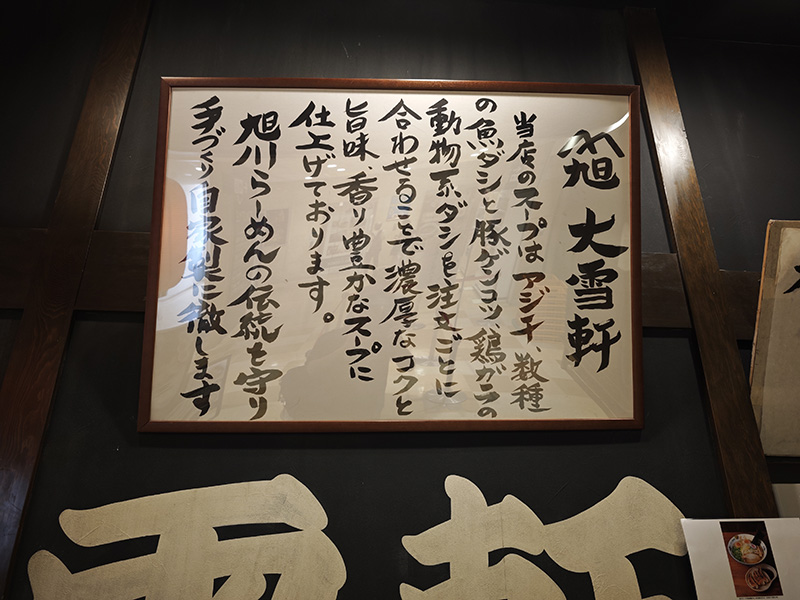 旭 大雪軒
当店のスープは アジ干、数種
の魚ダシと豚ゲンコツ、鶏ガラの
動物系ダシを注文ごとに
合わせることで濃厚なコクと
旨味 香り豊かなスープに
仕上げております。
旭川らーめんの伝統を守り
手づくり自家製に徹します
雪軒